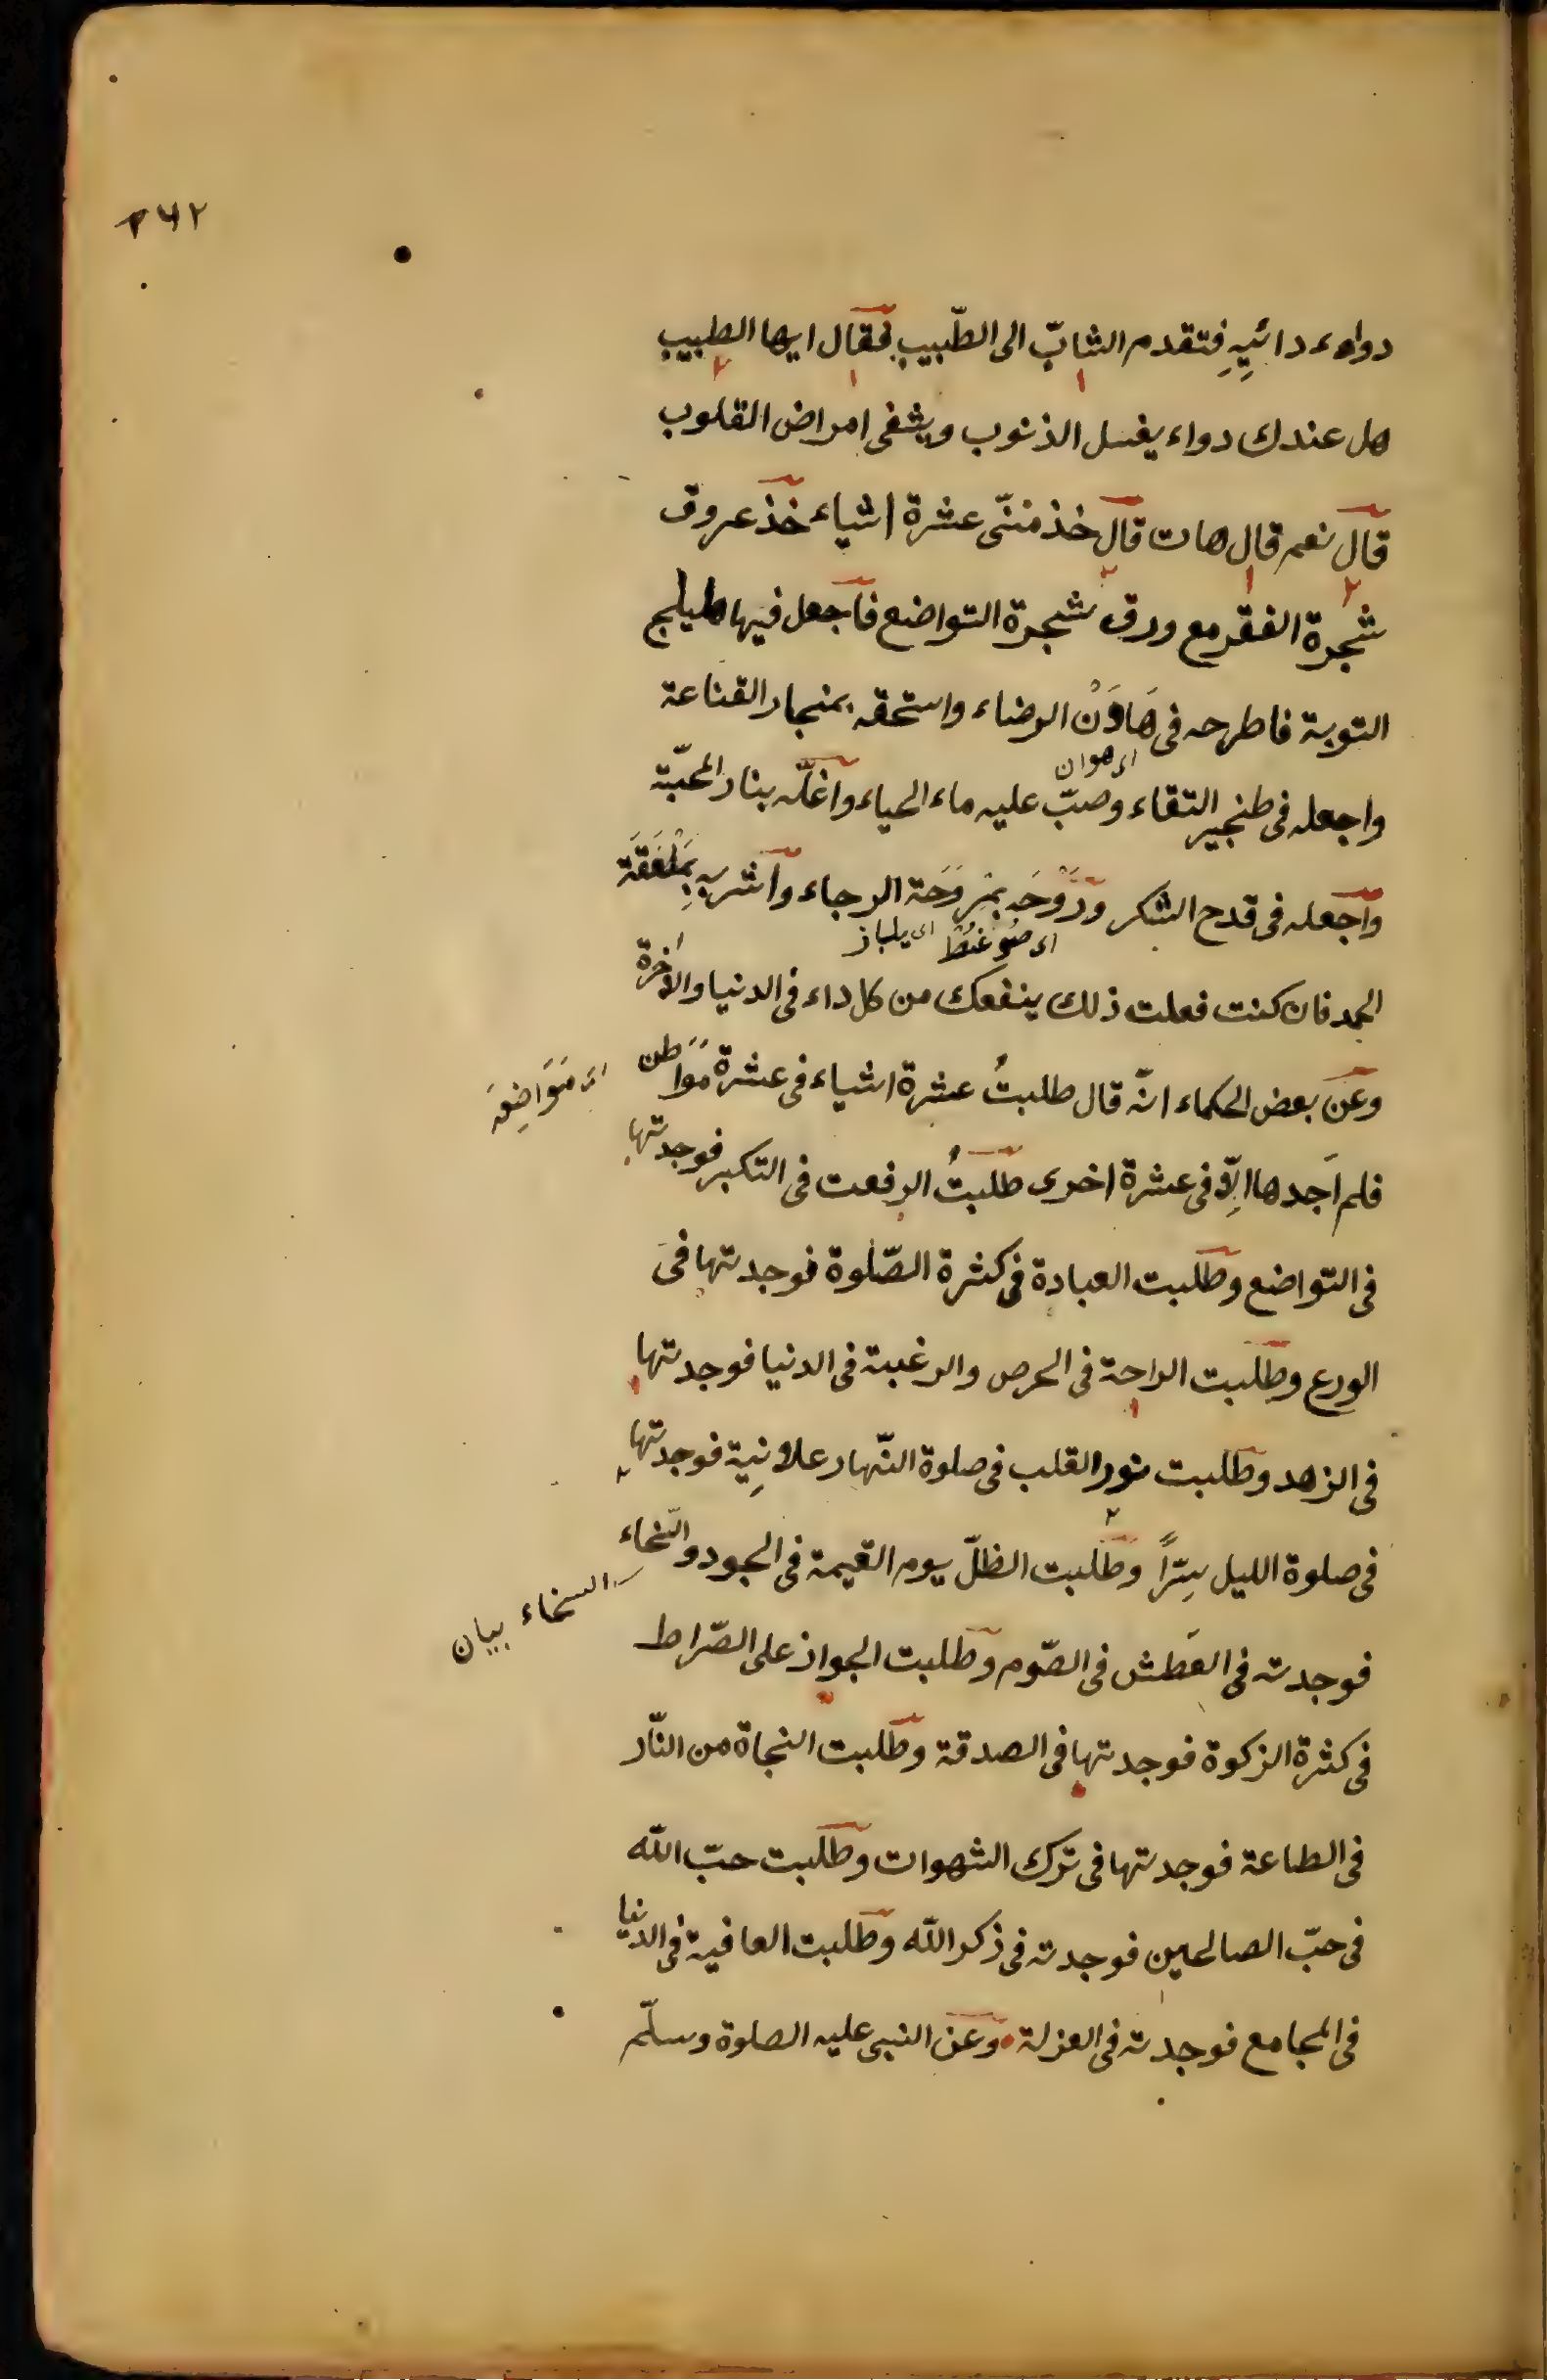 ٢٦٢
دواء دائيهِ فتقدم الشابّ الى الطّبيب فقال ايها الطبيب
هل عندك دواء يغسل الذنوب ويشفى امراض القلوب
قال نعم قال هات قال خذ منّى عشرة اشياء خذ عروق
شجرة الفقر مع ورق شجرة التواضع فاجعل فيها هليلج
التوبة فاطرحه فى هَاوَنْ الرضاء واسحقه بمنجار القناعة
اى هوان
واجعله فى طنجير التقاء وصبّ عليه ماء الحياء واغلّه بنار المحبّة
واجعله فى قدح الشكر ورَوِّحَه بمَِرْوَحَة الرجاء واشربه بِمَلْعَقَة
اى صُوغُط اى يلباز
الحمد فان كنت فعلت ذلك ينفعك من كل داء فى الدنيا والاخرة
وعن بعض الحكماء انّه قال طلبتُ عشرة اشياء فى عشرة مَوَاطن
اى مَوَاضِعَ
فلم اَجدها اِلّا فى عشرة اخرى طلبتُ الرفعت فى التكبر فوجدتها
فى التواضع وطلبت العبادة فى كثرة الصّلوة فوجدتها فى
الورع وطلبت الراحة فى الحرص والرغبة فى الدنيا فوجدتها
فى الزهد وطلبت نور القلب فى صلوة النّهار علانِية فوجدتها
فى صلوة الليل سِرّاً وطلبت الظلّ يوم القيمة فى الجود والسّخاء
السخاء بيان
فوجدته فى العَطش فى الصّوم وطلبت الجواز على الصّراط
فى كثرة الزكوة فوجدتها فى الصدقة وطلبت النجاة من النّار
فى الطاعة فوجدتها فى ترك الشهوات وطلبت حبّ اللّه
فى حبّ الصالحين فوجدته فى ذكر اللّه وطلبت العافية فى الدنيا
فى المجامع فوجدته فى العزلة وعن النبى عليه الصلوة وسلّم